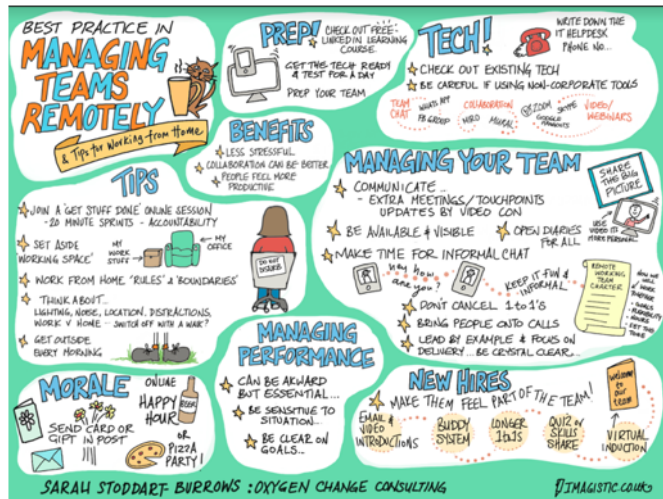 BEST PRACTICE IN
MANAGING
TEAMS
REMOTELY
& Tips for Working from Home
PREP!
CHECK OUT FREE
LINKEDIN LEARNING
COURSE.
GET THE TECH READY
& TEST FOR A DAY
PREP YOUR TEAM
TECH!
WRITE DOWN THE
IT HELPDESK
PHONE NO...
CHECK OUT EXISTING TECH
BE CAREFUL IF USING NON-CORPORATE TOOLS
TEAM
CHAT
WHATSAPP
FB GROUP
COLLABORATION
MIRO
MURAL
ZOOM
SKYPE
GOOGLE
HANGOUTS
VIDEO/
WEBINARS
BENEFITS
LESS STRESSFUL
COLLABORATION CAN BE BETTER
PEOPLE FEEL MORE
PRODUCTIVE
TIPS
JOIN A 'GET STUFF DONE' ONLINE SESSION
- 20 MINUTE SPRINTS - ACCOUNTABILITY
SET ASIDE
WORKING SPACE'
MY
WORK
STUFF
MY
OFFICE
WORK FROM HOME 'RULES' & 'BOUNDARIES'
THINK ABOUT...
LIGHTING, NOISE, LOCATION, DISTRACTIONS,
WORK V HOME - SWITCH OFF WITH A WALK?
GET OUTSIDE
EVERY MORNING
DO NOT
DISTURB
MANAGING YOUR TEAM
COMMUNICATE...
- EXTRA MEETINGS/TOUCHPOINTS
UPDATES BY VIDEO CON
BE AVAILABLE & VISIBLE
OPEN DIARIES
FOR ALL
MAKE TIME FOR INFORMAL CHAT
Hey how
are you?
KEEP IT FUN &
INFORMAL
DON'T CANCEL 1to1's
BRING PEOPLE ONTO CALLS
LEAD BY EXAMPLE & FOCUS ON
DELIVERY... BE CRYSTAL CLEAR...
SHARE
THE BIG
PICTURE
USE
VIDEO ITS
MORE PERSONAL
REMOTE
WORKING
TEAM
CHARTER
HOW WE
WILL WORK
TOGETHER
- GOALS
- FLEXIBILITY
- HOURS
- SET THE
TONE
MANAGING
PERFORMANCE
CAN BE AKWARD
BUT ESSENTIAL...
BE SENSITIVE TO
SITUATION...
BE CLEAR ON
GOALS...
MORALE
SEND CARD OR
GIFT IN POST
ONLINE
HAPPY
HOUR
BEER!
OR
PIZZA
PARTY!
NEW HIRES
MAKE THEM FEEL PART OF THE TEAM!
EMAIL &
VIDEO
INTRODUCTIONS
BUDDY
SYSTEM
LONGER
1to1s
QUIZ OR
SKILLS
SHARE
welcome
to our
team
VIRTUAL
INDUCTION
SARAH STODDART-BURROWS : OXYGEN CHANGE CONSULTING
IMAGISTIC.CO.UK